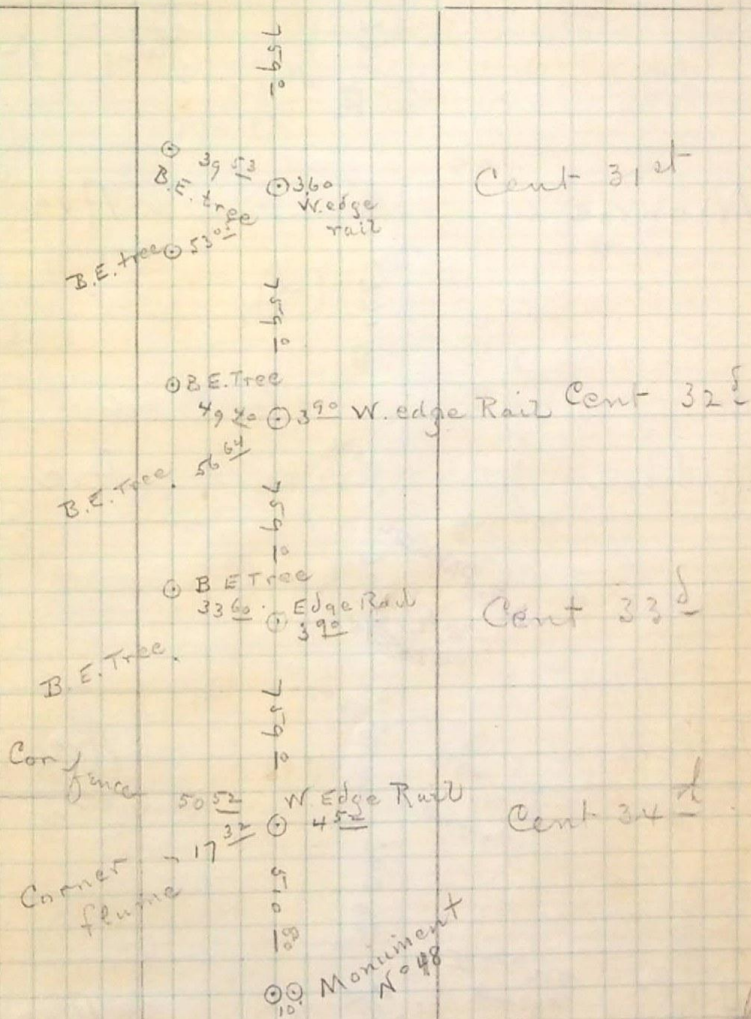 759 0
39 53
B.E. tree
3.60
W. edge
rail
Cent 31 st
B.E. tree 53 0
759 0
B.E. Tree
3 90 W. edge Rail Cent 32
56 64
B.E. Tree
759 0
B E Tree
33 60 Edge Rail
3 90
Cent 33 d
B.E. Tree
759 0
Cor fence
50 52 W. Edge Rail
4 52
Cent 34 th
17 32
Corner flume
510
10
Monument
No 48